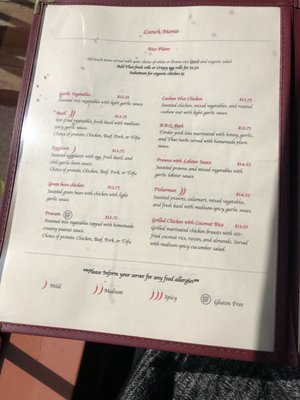 Lunch Menu
Rice Plates
All lunch items served with your choice of white or brown rice and organic salad
Add Thai fresh rolls or Crispy egg rolls for $2.50
Substitute for organic chicken $3
Garlic Vegetables $12.75
Sautéed mix vegetables with light garlic sauce.
Basil $12.75
Stir-fried vegetables, fresh basil with medium-spicy garlic sauce.
Choice of protein: Chicken, Beef, Pork, or Tofu
Eggplant $12.75
Sautéed eggplants with egg, fresh basil, and chili garlic bean sauce.
Choice of protein: Chicken, Beef, Pork, or Tofu
Green bean chicken $12.75
Sautéed green bean with chicken with light garlic sauce.
Praram GF $12.75
Steamed mix vegetables topped with homemade creamy peanut sauce.
Choice of protein: Chicken, Beef, Pork, or Tofu
Cashew Nut Chicken $12.75
Sautéed chicken, mixed vegetables, and roasted cashew nut with light garlic sauce.
B.B.Q. Pork $12.75
Tender pork loin marinated with honey, garlic, and Thai herbs served with homemade plum sauce.
Prawns with Lobster Sauce $14.25
Sautéed prawns and mixed vegetables with garlic lobster sauce.
Fisherman $14.25
Sautéed prawns, calamari, mixed vegetables, and fresh basil with medium-spicy garlic sauce.
Grilled Chicken with Coconut Rice $13.50
Grilled marinated chicken breasts with stir-fried coconut rice, raisin, and almonds. Served with medium-spicy cucumber salad.
**Please Inform your server for any food allergies**
Mild
Medium
Spicy
GF Gluten Free